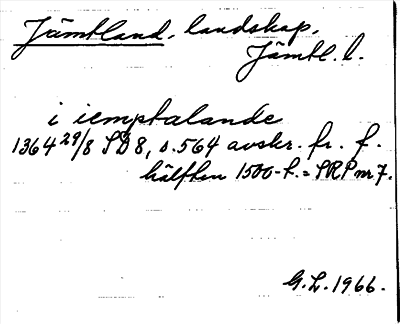 Jämtland, landskap,
Jämtl. l.
i iemptalande
1364 29/8 SD 8, s. 564 avskr. fr. f.
hälften 1500-t. = SRP nr 7.
G.L. 1966.